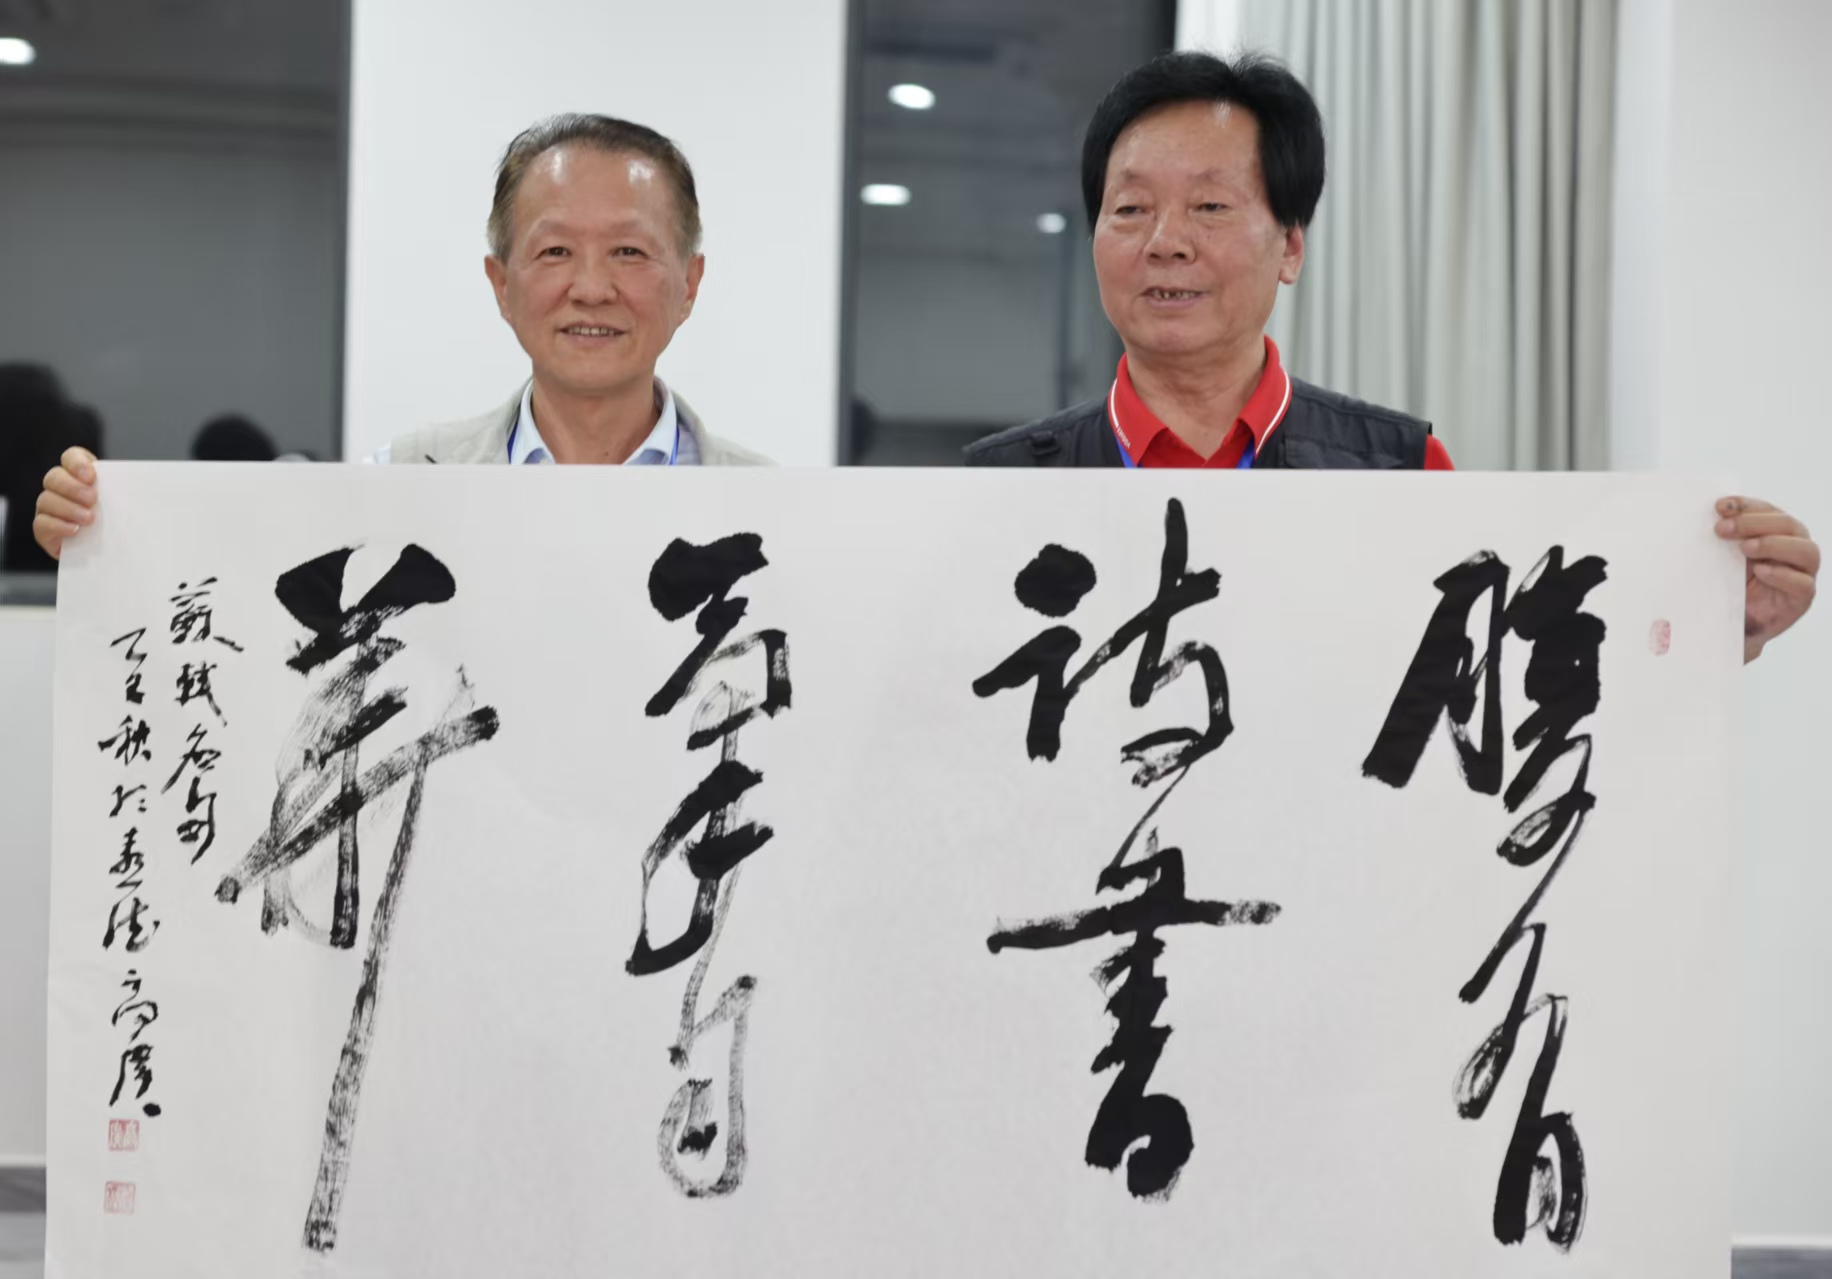 腹有
詩書
氣自
華
蘇軾名句
乙巳秋於